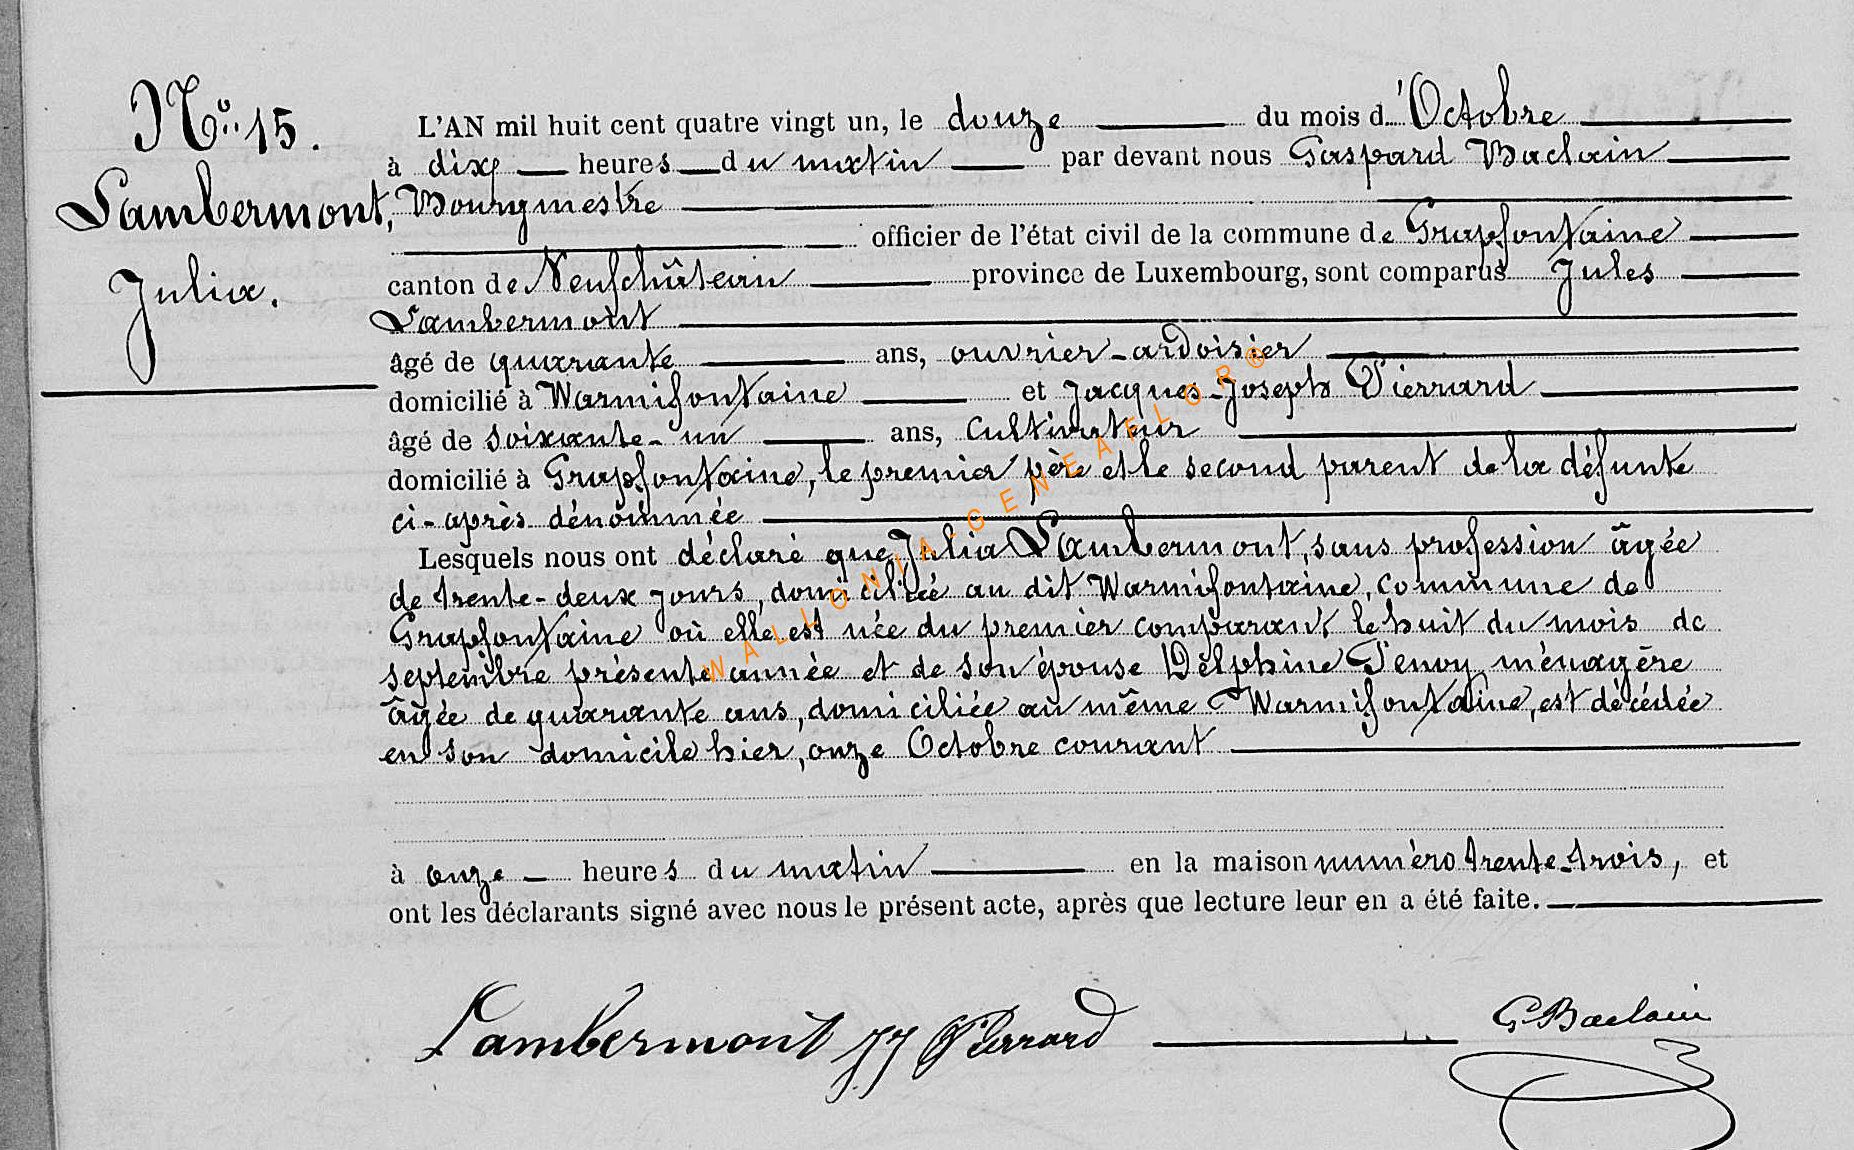 Nº 15.
Lambermont,
Julia.
L'AN mil huit cent quatre vingt un, le douze du mois d'Octobre
à dix heures du matin par devant nous Gaspard Baclain
Bourgmestre
officier de l'état civil de la commune de Grapfontaine
canton de Neufchâteau province de Luxembourg, sont comparus Jules
Lambermont
âgé de quarante ans, ouvrier-ardoisier
domicilié à Warmifontaine et Jacques-Joseph Pierrard
âgé de soixante-un ans, Cultivateur
domicilié à Grapfontaine, le premier père et le second parent de la défunte
ci-après dénommée
Lesquels nous ont déclaré que Julia Lambermont, sans profession âgée
de trente-deux jours, domiciliée au dit Warmifontaine, commune de
Grapfontaine où elle est née du premier comparant le huit du mois de
septembre présente année et de son épouse Delphine ménagère
âgée de quarante ans, domiciliée au même Warmifontaine, est décédée
en son domicile hier, onze Octobre courant
à onze heures du matin en la maison numéro trente-trois, et
ont les déclarants signé avec nous le présent acte, après que lecture leur en a été faite.
Lambermont JJ Pierrard
G Baclain
WALLONIA-GENEAFLOR®